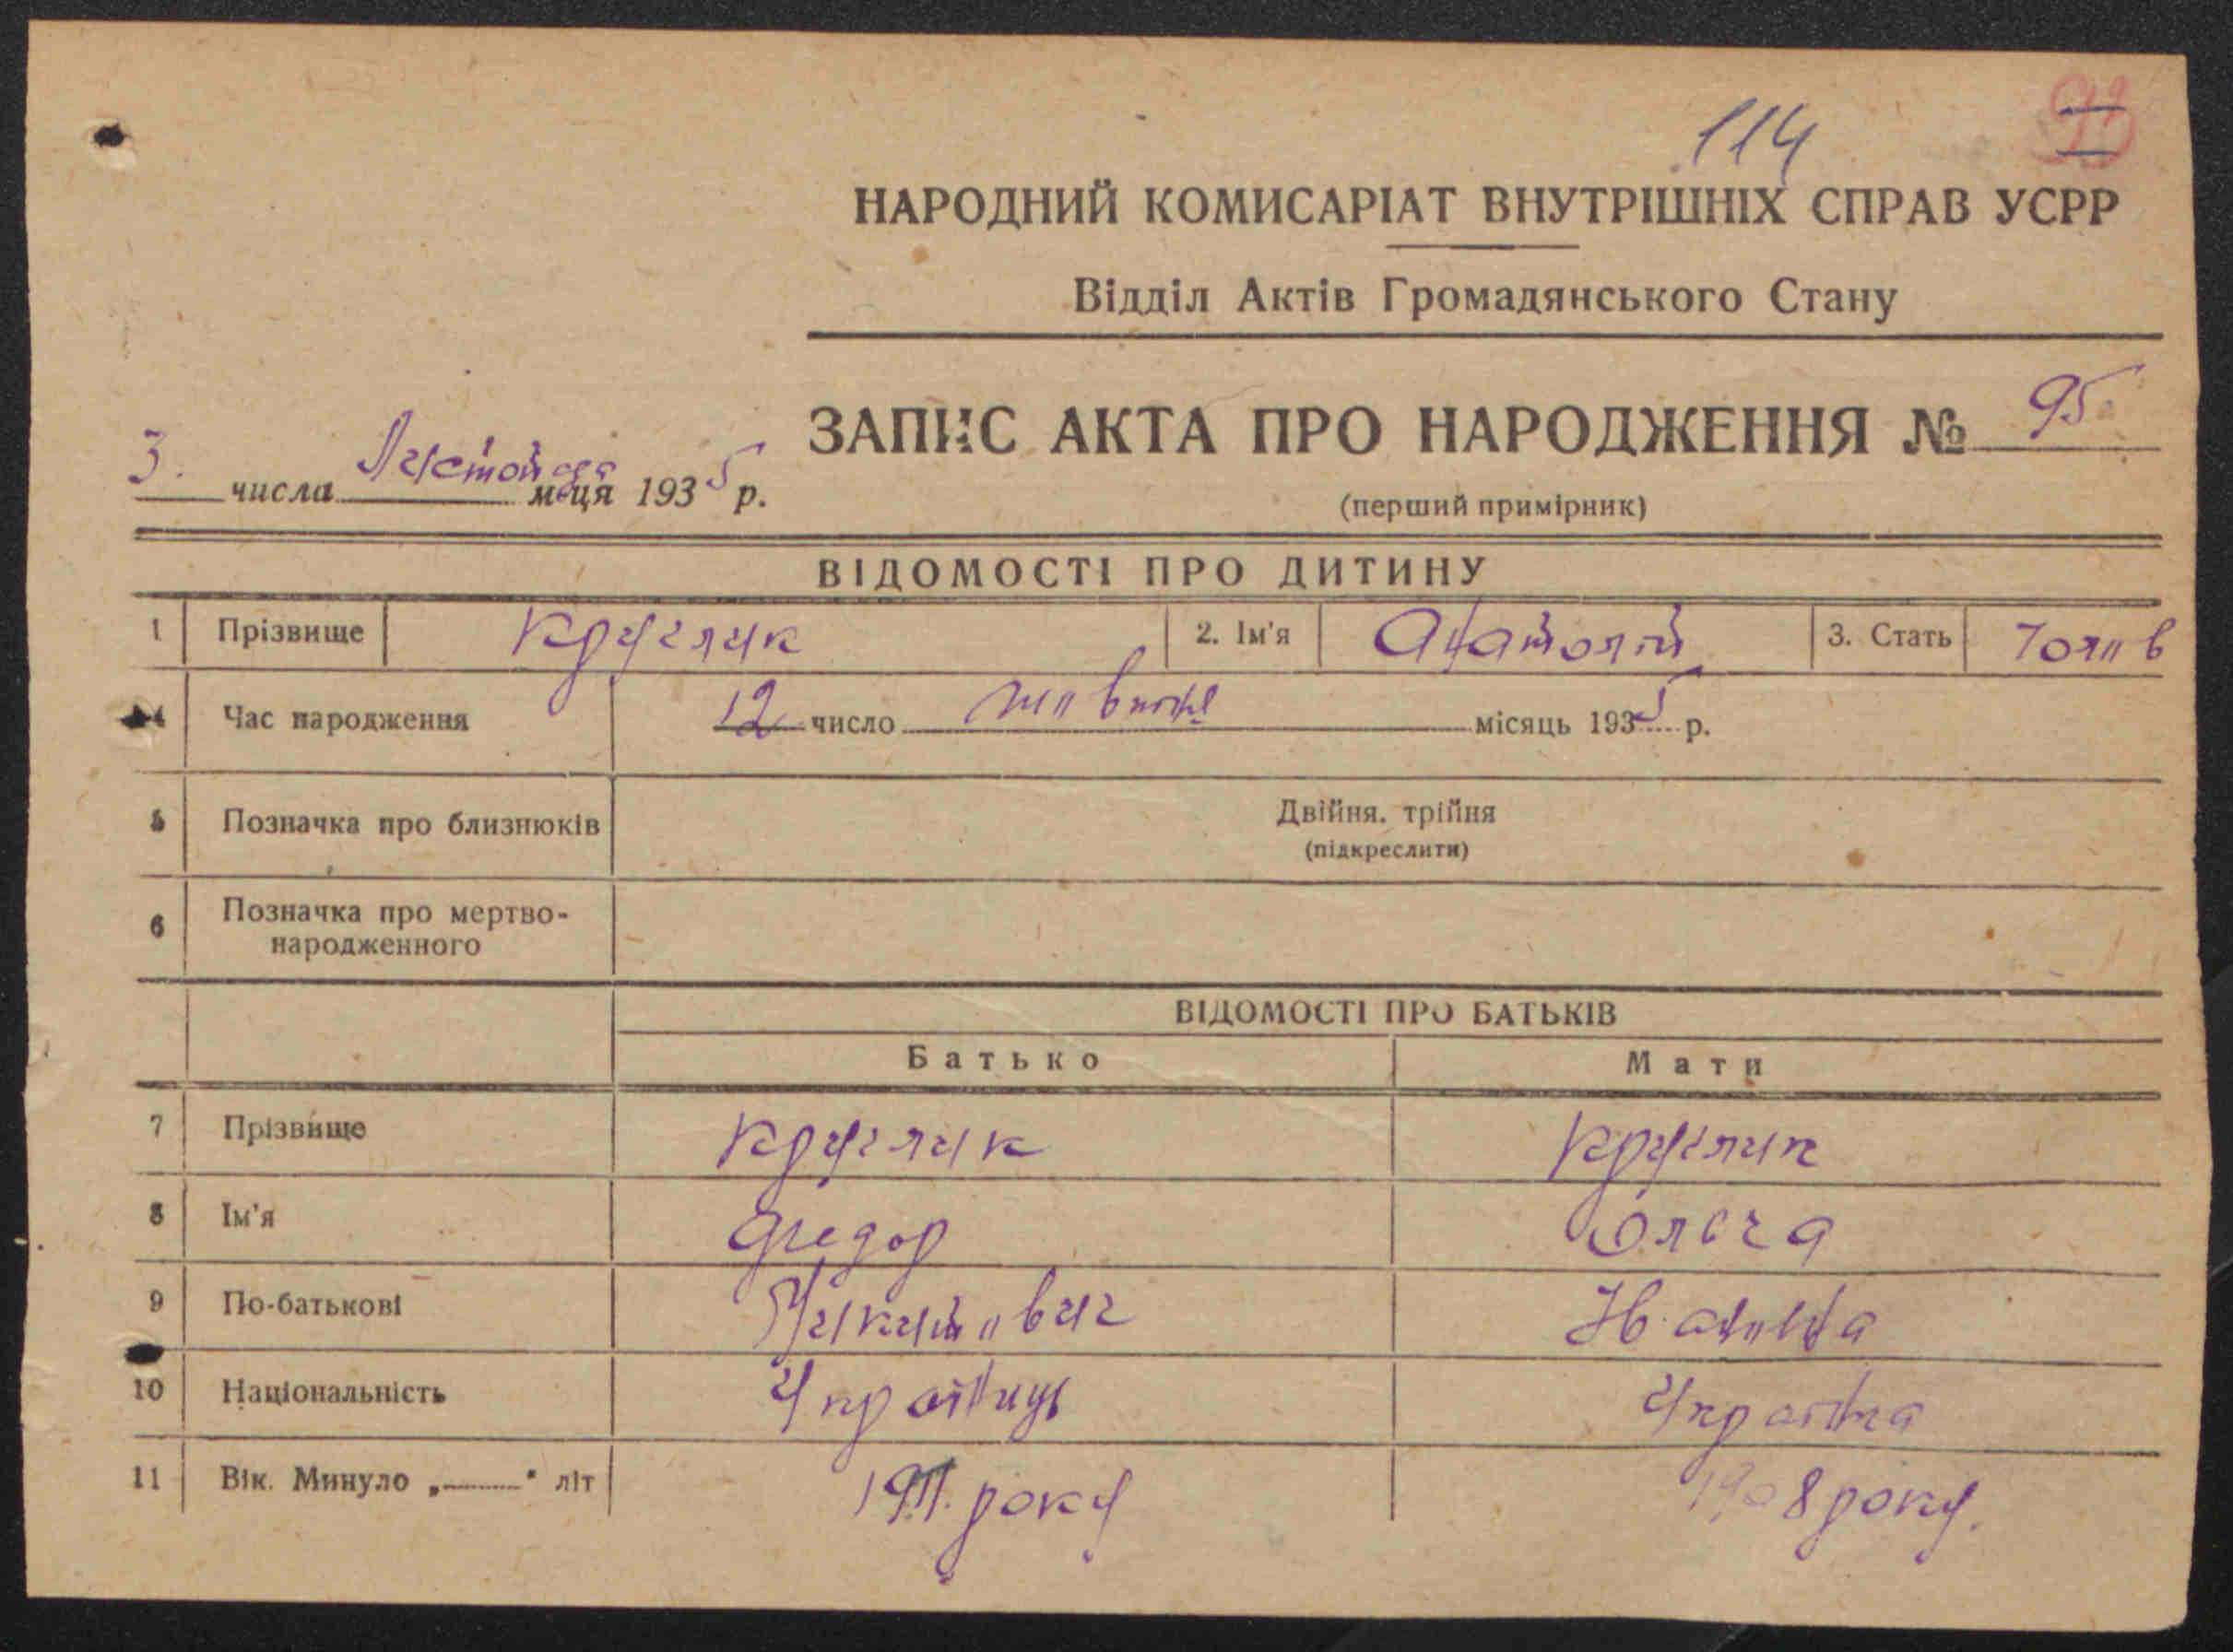 114
НАРОДНИЙ КОМИСАРІАТ ВНУТРІШНІХ СПРАВ УСРР
Відділ Актів Громадянського Стану
ЗАПИС АКТА ПРО НАРОДЖЕННЯ № 95
3 числа Листопада м-ця 1935 р.
(перший примірник)
ВІДОМОСТІ ПРО ДИТИНУ
1 Прізвище Круглик 2. Ім'я Анатолій 3. Стать Чолів
4 Час народження 12 число жовтня місяць 1935 р.
5 Позначка про близнюків Двійня, трійня
(підкреслити)
6 Позначка про мертво-
народженного
ВІДОМОСТІ ПРО БАТЬКІВ
Батько Мати
7 Прізвище Круглик Круглик
8 Ім'я Федор Ольга
9 По-батькові
10 Національність Українць Українка
11 Вік. Минуло „ " літ 1911. року 1908 року.